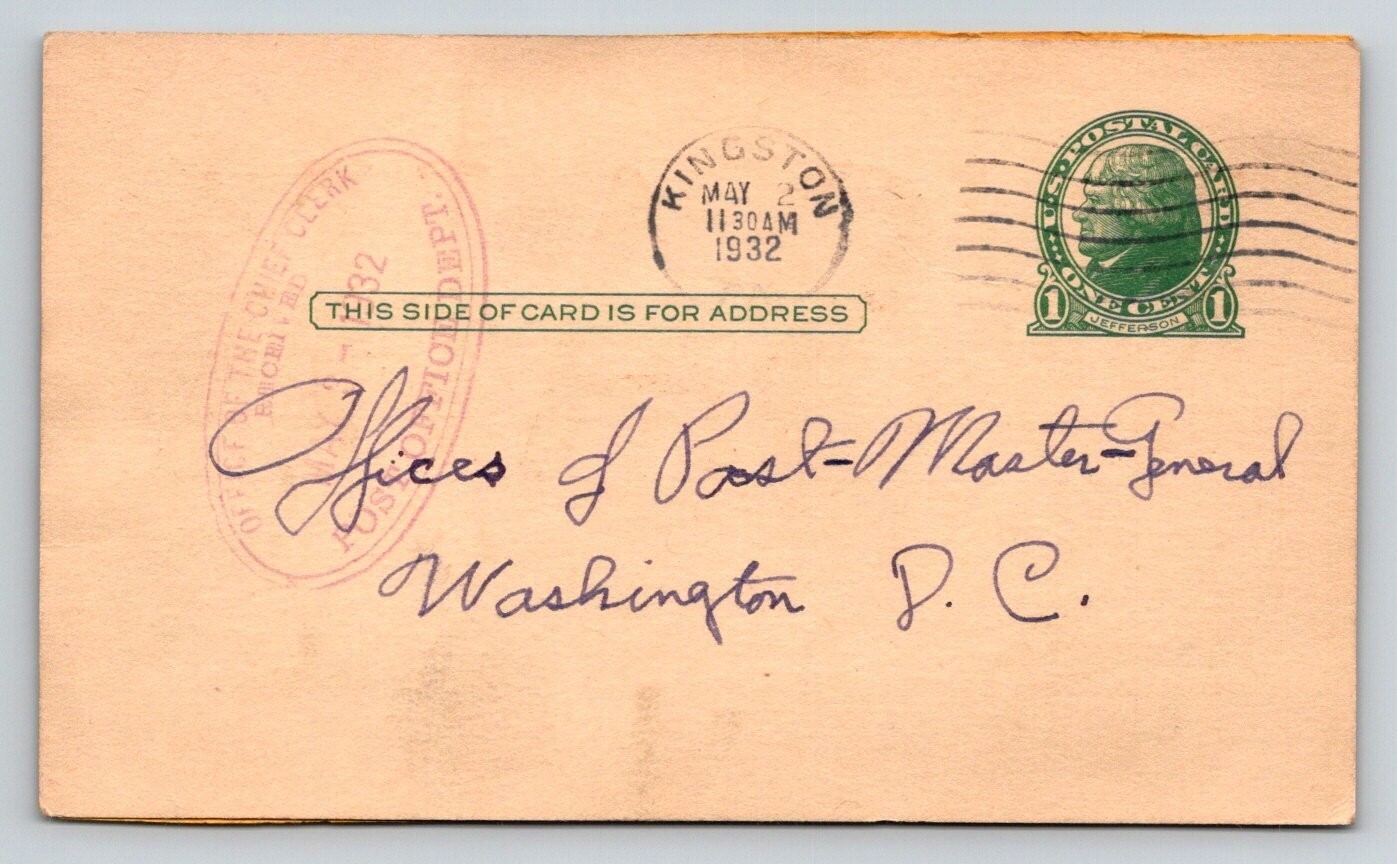 KINGSTON
MAY 2
11 30 AM
1932
U.S. POSTAL CARD
ONE CENT
1 JEFFERSON 1
OFFICE OF THE CHIEF CLERK
RECEIVED
MAY 3 - 1932
POST OFFICE DEPT.
THIS SIDE OF CARD IS FOR ADDRESS
Offices of Post-Master-General
Washington D. C.